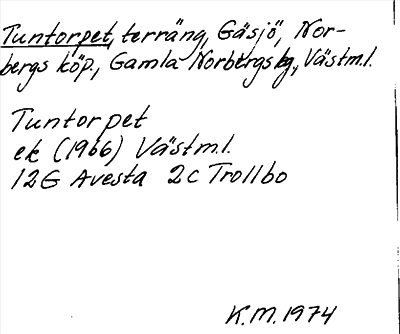 Tuntorpet, terräng, Gäsjö, Nor-
bergs köp., Gamla Norbergs bg, Västm.l.
Tuntorpet
ek (1966) Västm.l.
12G Avesta 2c Trollbo
K.M. 1974